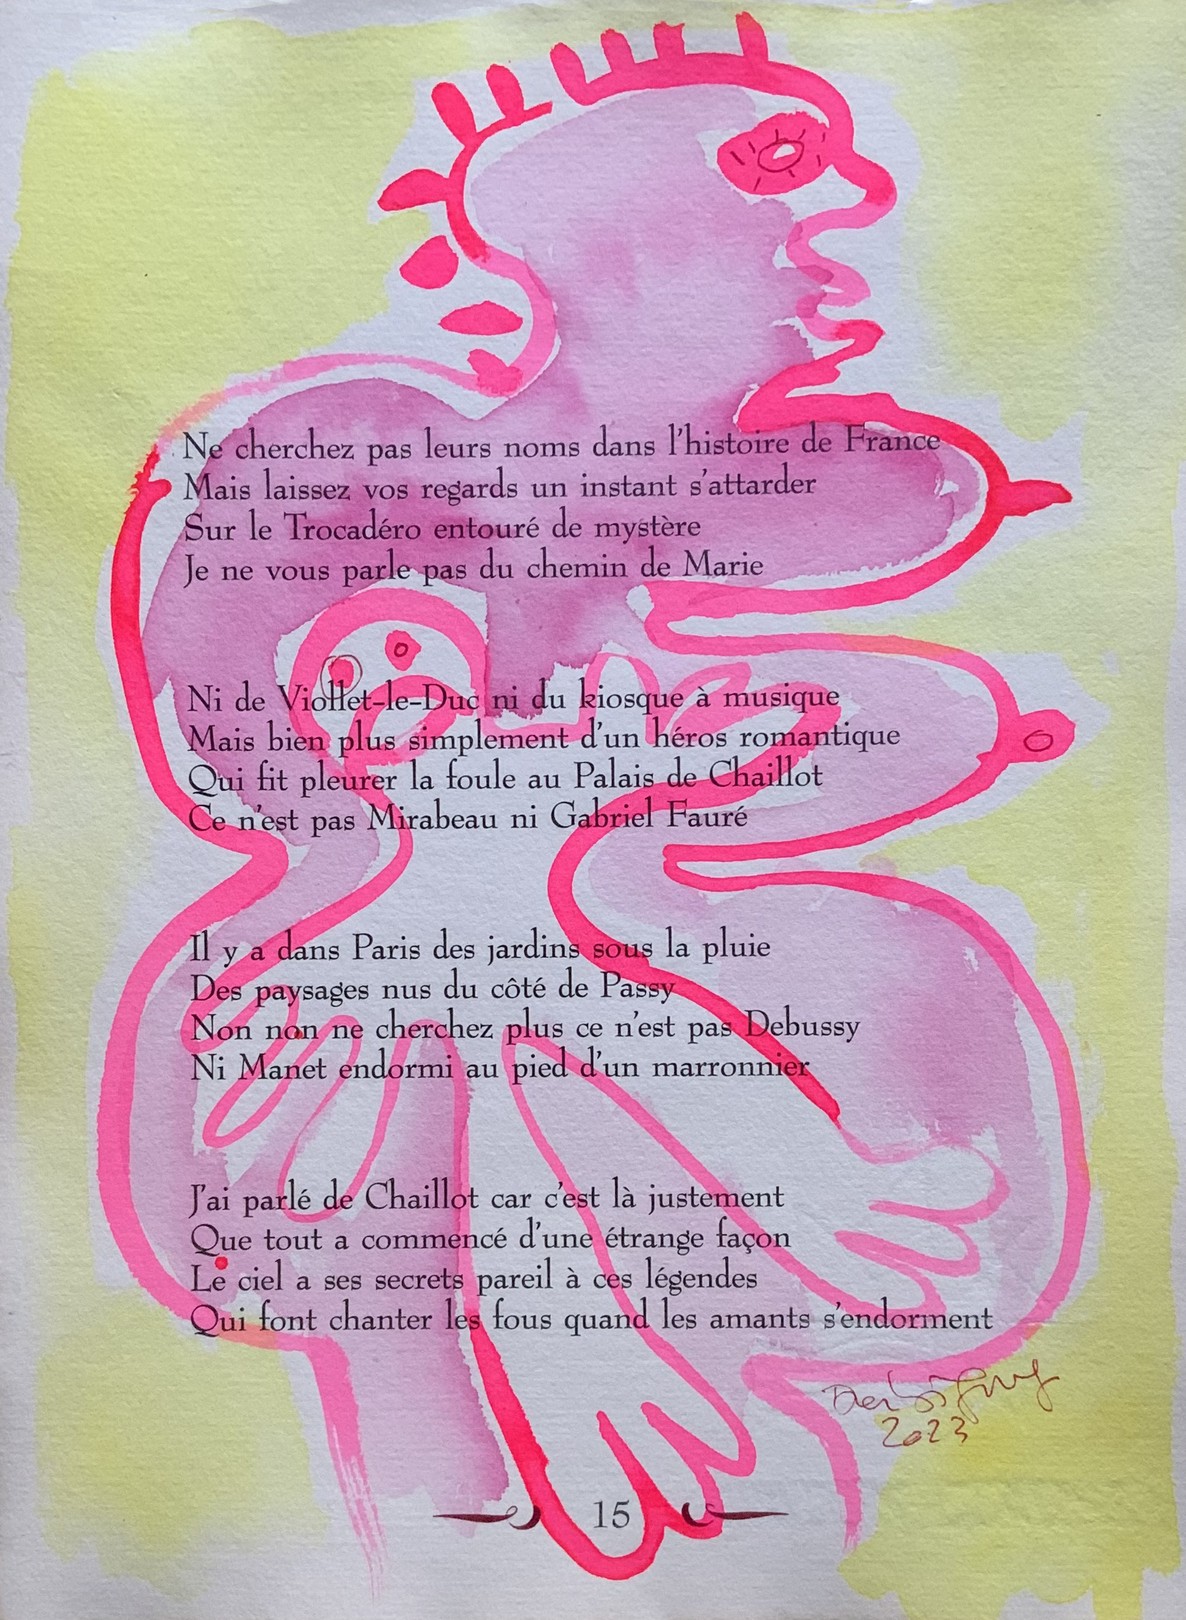 Ne cherchez pas leurs noms dans l'histoire de France
Mais laissez vos regards un instant s'attarder
Sur le Trocadéro entouré de mystère
Je ne vous parle pas du chemin de Marie
Ni de Viollet-le-Duc ni du kiosque à musique
Mais bien plus simplement d'un héros romantique
Qui fit pleurer la foule au Palais de Chaillot
Ce n'est pas Mirabeau ni Gabriel Fauré
Il y a dans Paris des jardins sous la pluie
Des paysages nus du côté de Passy
Non non ne cherchez plus ce n'est pas Debussy
Ni Manet endormi au pied d'un marronnier
J'ai parlé de Chaillot car c'est là justement
Que tout a commencé d'une étrange façon
Le ciel a ses secrets pareil à ces légendes
Qui font chanter les fous quand les amants s'endorment
2023
15